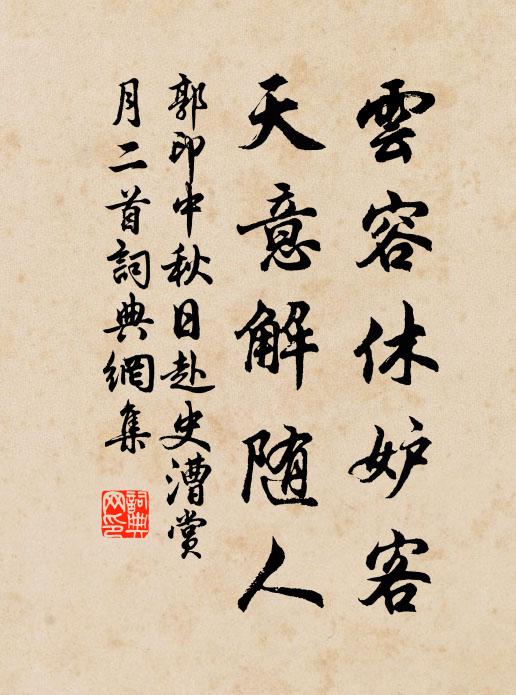 雲容休妒客
天意解随人
郭印中秋日赴史漕赏
月二首詞典網集
詞典
网印